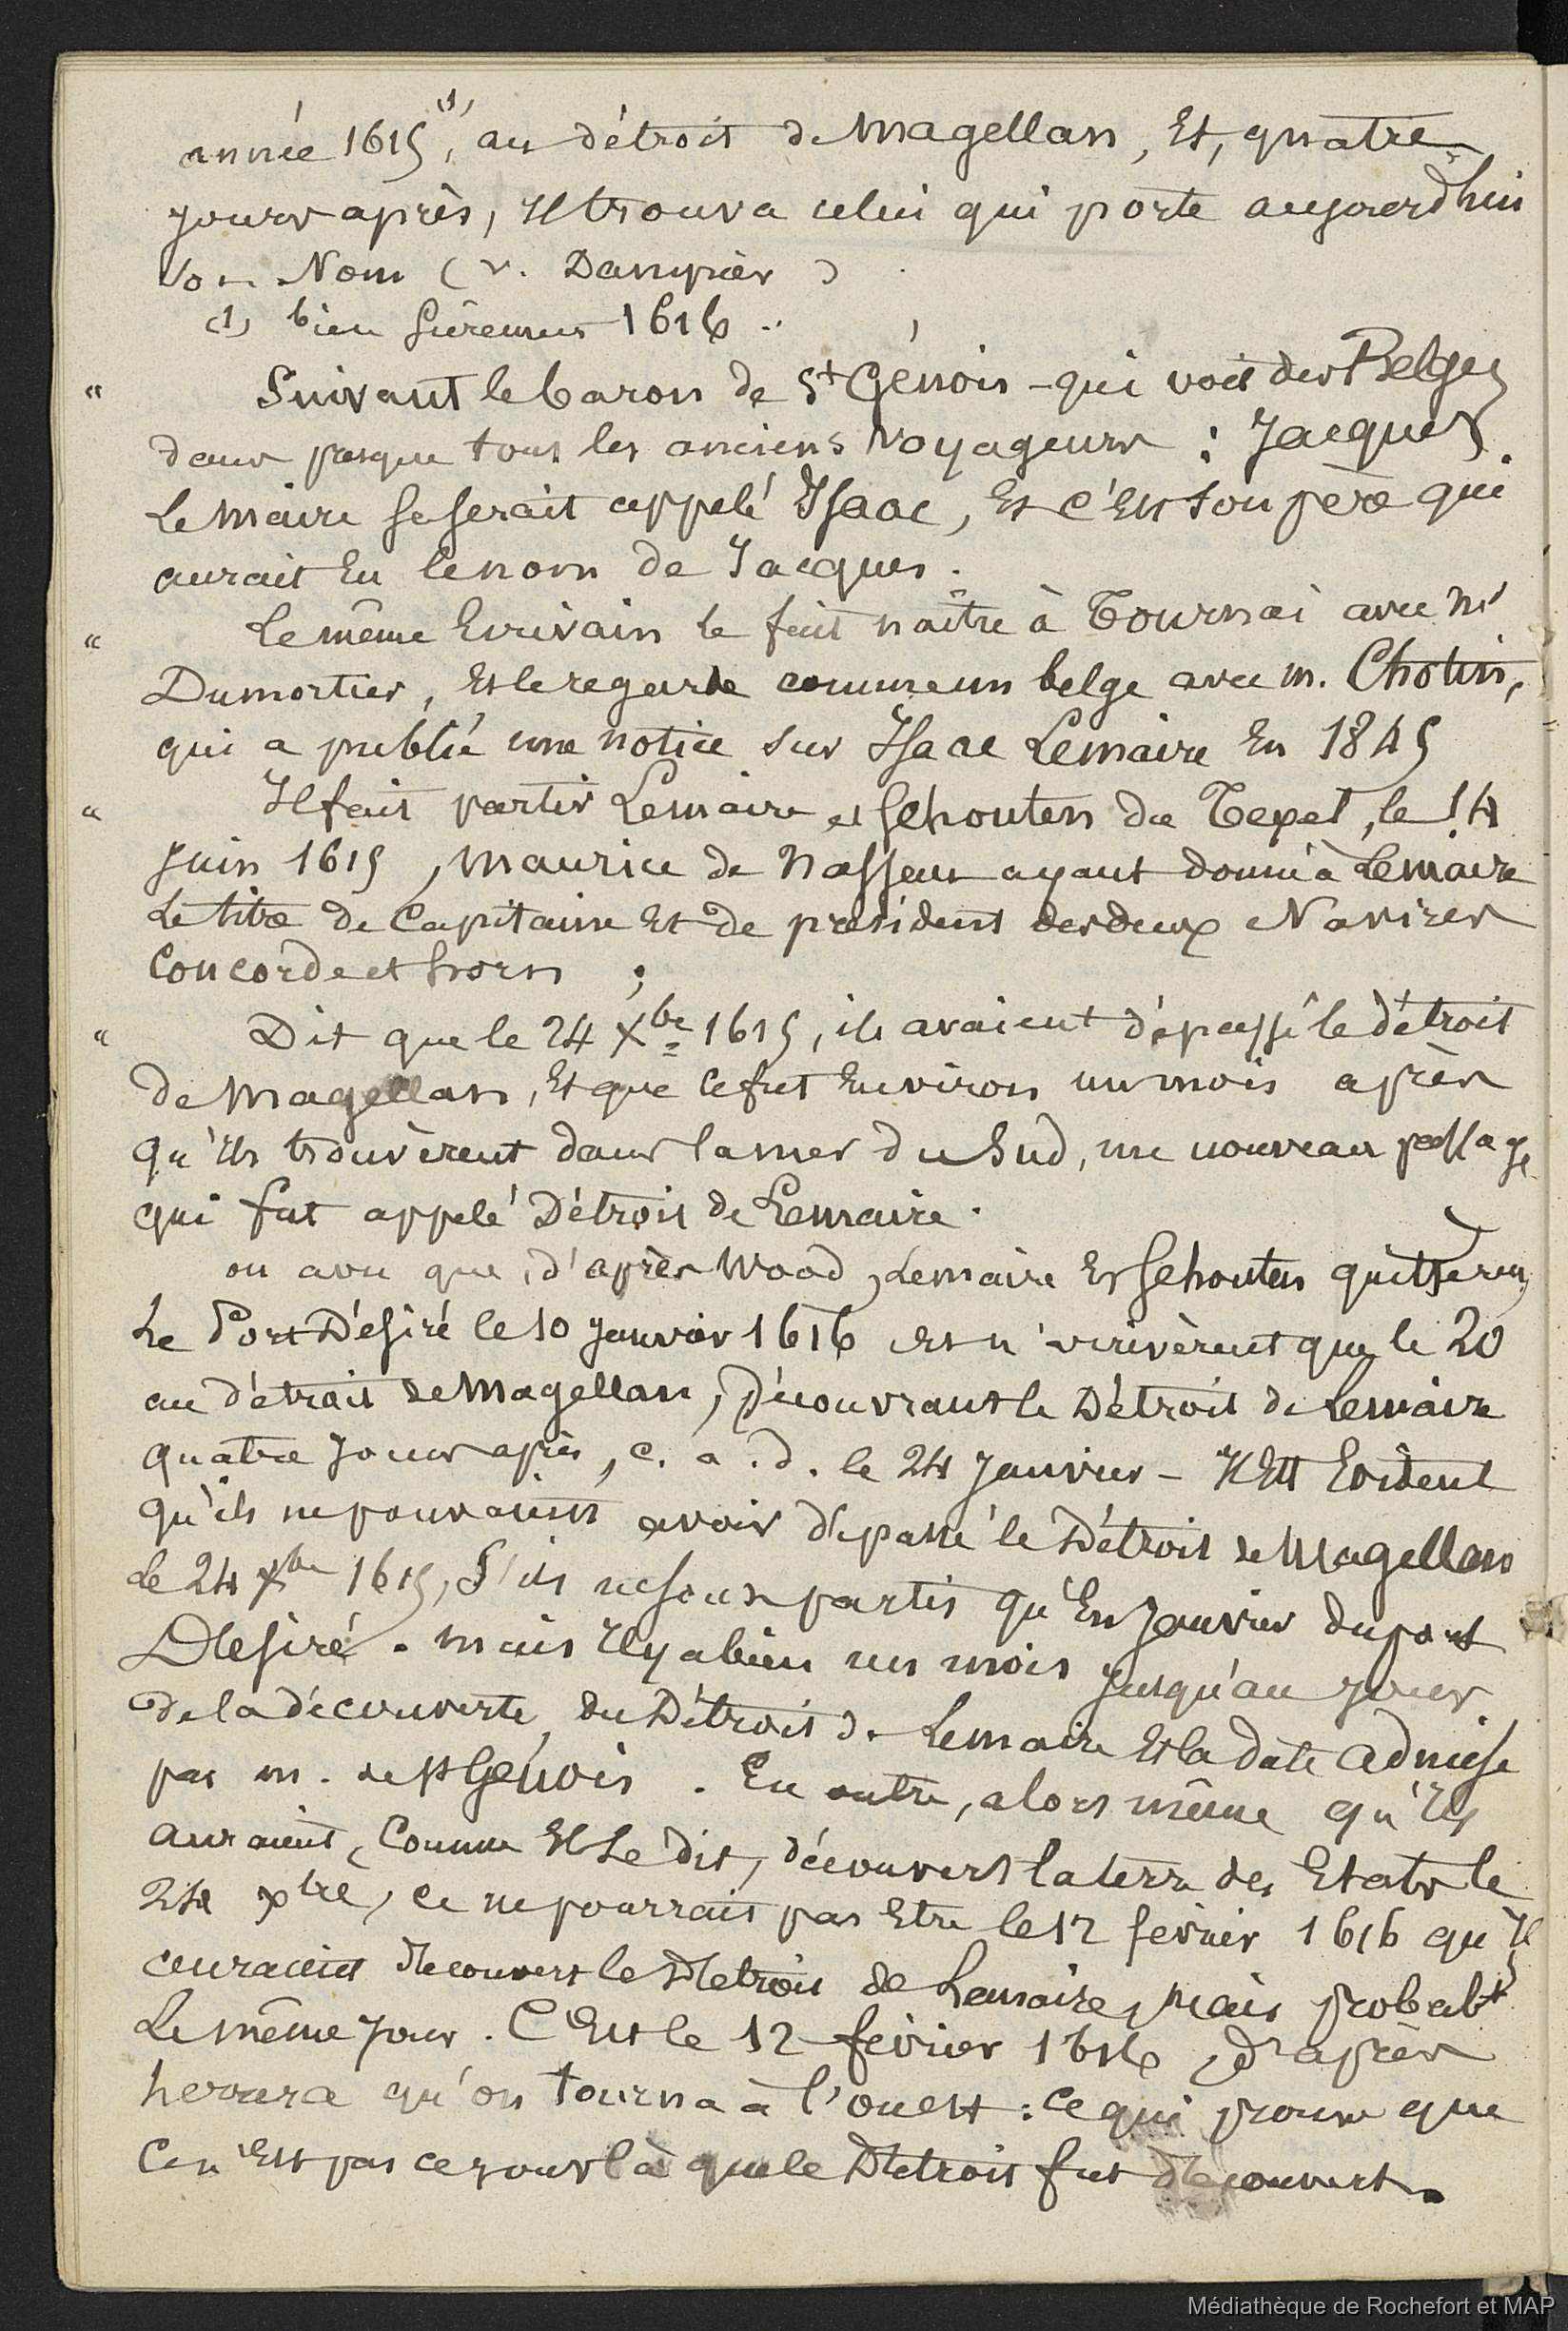 année 1615 (1), au détroit de Magellan, Et, quatre
jours après, Il trouva celui qui porte aujourd'hui
son Nom (v. Dampier)
(1) bien sûrement 1616 ..
" Suivant le baron de St Génois - qui voit des Belges
dans presque tous les anciens voyageurs : Jacques
Lemaire se serait appelé Isaac, Et c'Est son père qui
aurait Eu le nom de Jacques.
" Le même Ecrivain le fait naître à Tournai avec Mr
Dumortier, Et le regarde comme un belge avec m. Chotin,
qui a publié une notice sur Isaac Lemaire En 1845
" Il fait partir Lemaire et Schouten du Texel, le 14
Juin 1615, Maurice de Nassau ayant donné à Lemaire
Le titre de Capitaine Et de président des deux Navires
Concorde et horn ;
" Dit que le 24 Xbre 1615, ils avaient dépassé le détroit
de Magellan, Et que ce fut Environ un mois après
qu'Ils trouvèrent dans la mer du Sud, un nouveau passage
qui fut appelé Détroit de Lemaire.
on a vu que, d'après Wood, Lemaire Et Schouten quittèrent
Le Port Désiré le 10 janvier 1616 et n'arrivèrent que le 20
au détroit de Magellan, Découvrant le Détroit de Lemaire
quatre Jours après, c. a. d. le 24 Janvier - Il Est Evident
qu'ils ne pouvaient avoir dépassé le Détroit de Magellan
Le 24 Xbre 1615, S'ils ne sont partis qu'En Janvier du port
Désiré. mais Il y a bien un mois jusqu'au jour
de la découverte du Détroit de Lemaire Et la date admise
par m. de St Génois. En outre, alors même qu'Ils
auraient, Comme Il Le dit, découvert la terre des Etats le
24 Xbre, ce ne pourrait pas Etre le 12 février 1616 qu'Ils
auraient découvert le Détroit de Lemaire, Mais probablt
Le même jour. C'Est le 12 février 1616, d'après
herrera qu'on tourna à l'ouest : ce qui prouve que
Ce n'Est pas ce jour là que le Détroit fut découvert.
Médiathèque de Rochefort et MAP